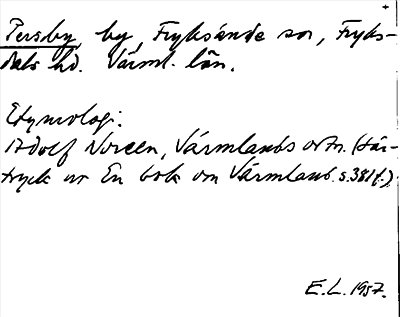 Persby, by, Fryksände sn, Fryks-
dals hd. Värml. län.
Etymologi:
Adolf Noreen, Värmlands ortn. (Sär-
tryck ur En bok om Värmland. s. 381 f.)
E.L. 1957.